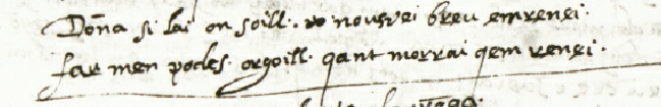 Don̄a si lai on soill. no nousvei breu emrenei.
far men podes. orgoill. qant morrai qem renei.